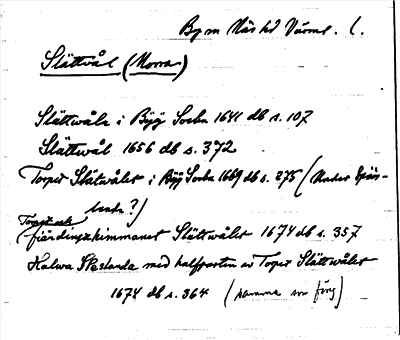 By sn Näs hd Värml. l.
Slättvål (Norra)
Slättwåln i Byy Sochn 1641 db s. 107
Slättwål 1656 db s. 372
Torpet Slätwålet i Byy Sochn 1669 db s. 275 (Under Späs-
landa?)
Torpet och
fierdingzhimmanet Slättwålet 1674 db s. 357
Halwa Skeslanda med halfparten av Torpet Slättwålet
1674 db s. 364 (samma som föreg)